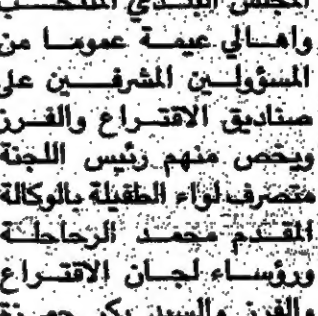 المجلس البلدي المنتخب
واهالي عيمة عموما من
المسؤولين المشرفين على
صناديق الاقتراع والفرز
ويخص منهم رئيس اللجنة
متصرف لواء الطفيلة بالوكالة
المقدم محمد الرحاحلة
ورؤساء لجان الاقتراع
والفرز والسيد بكر حمزة